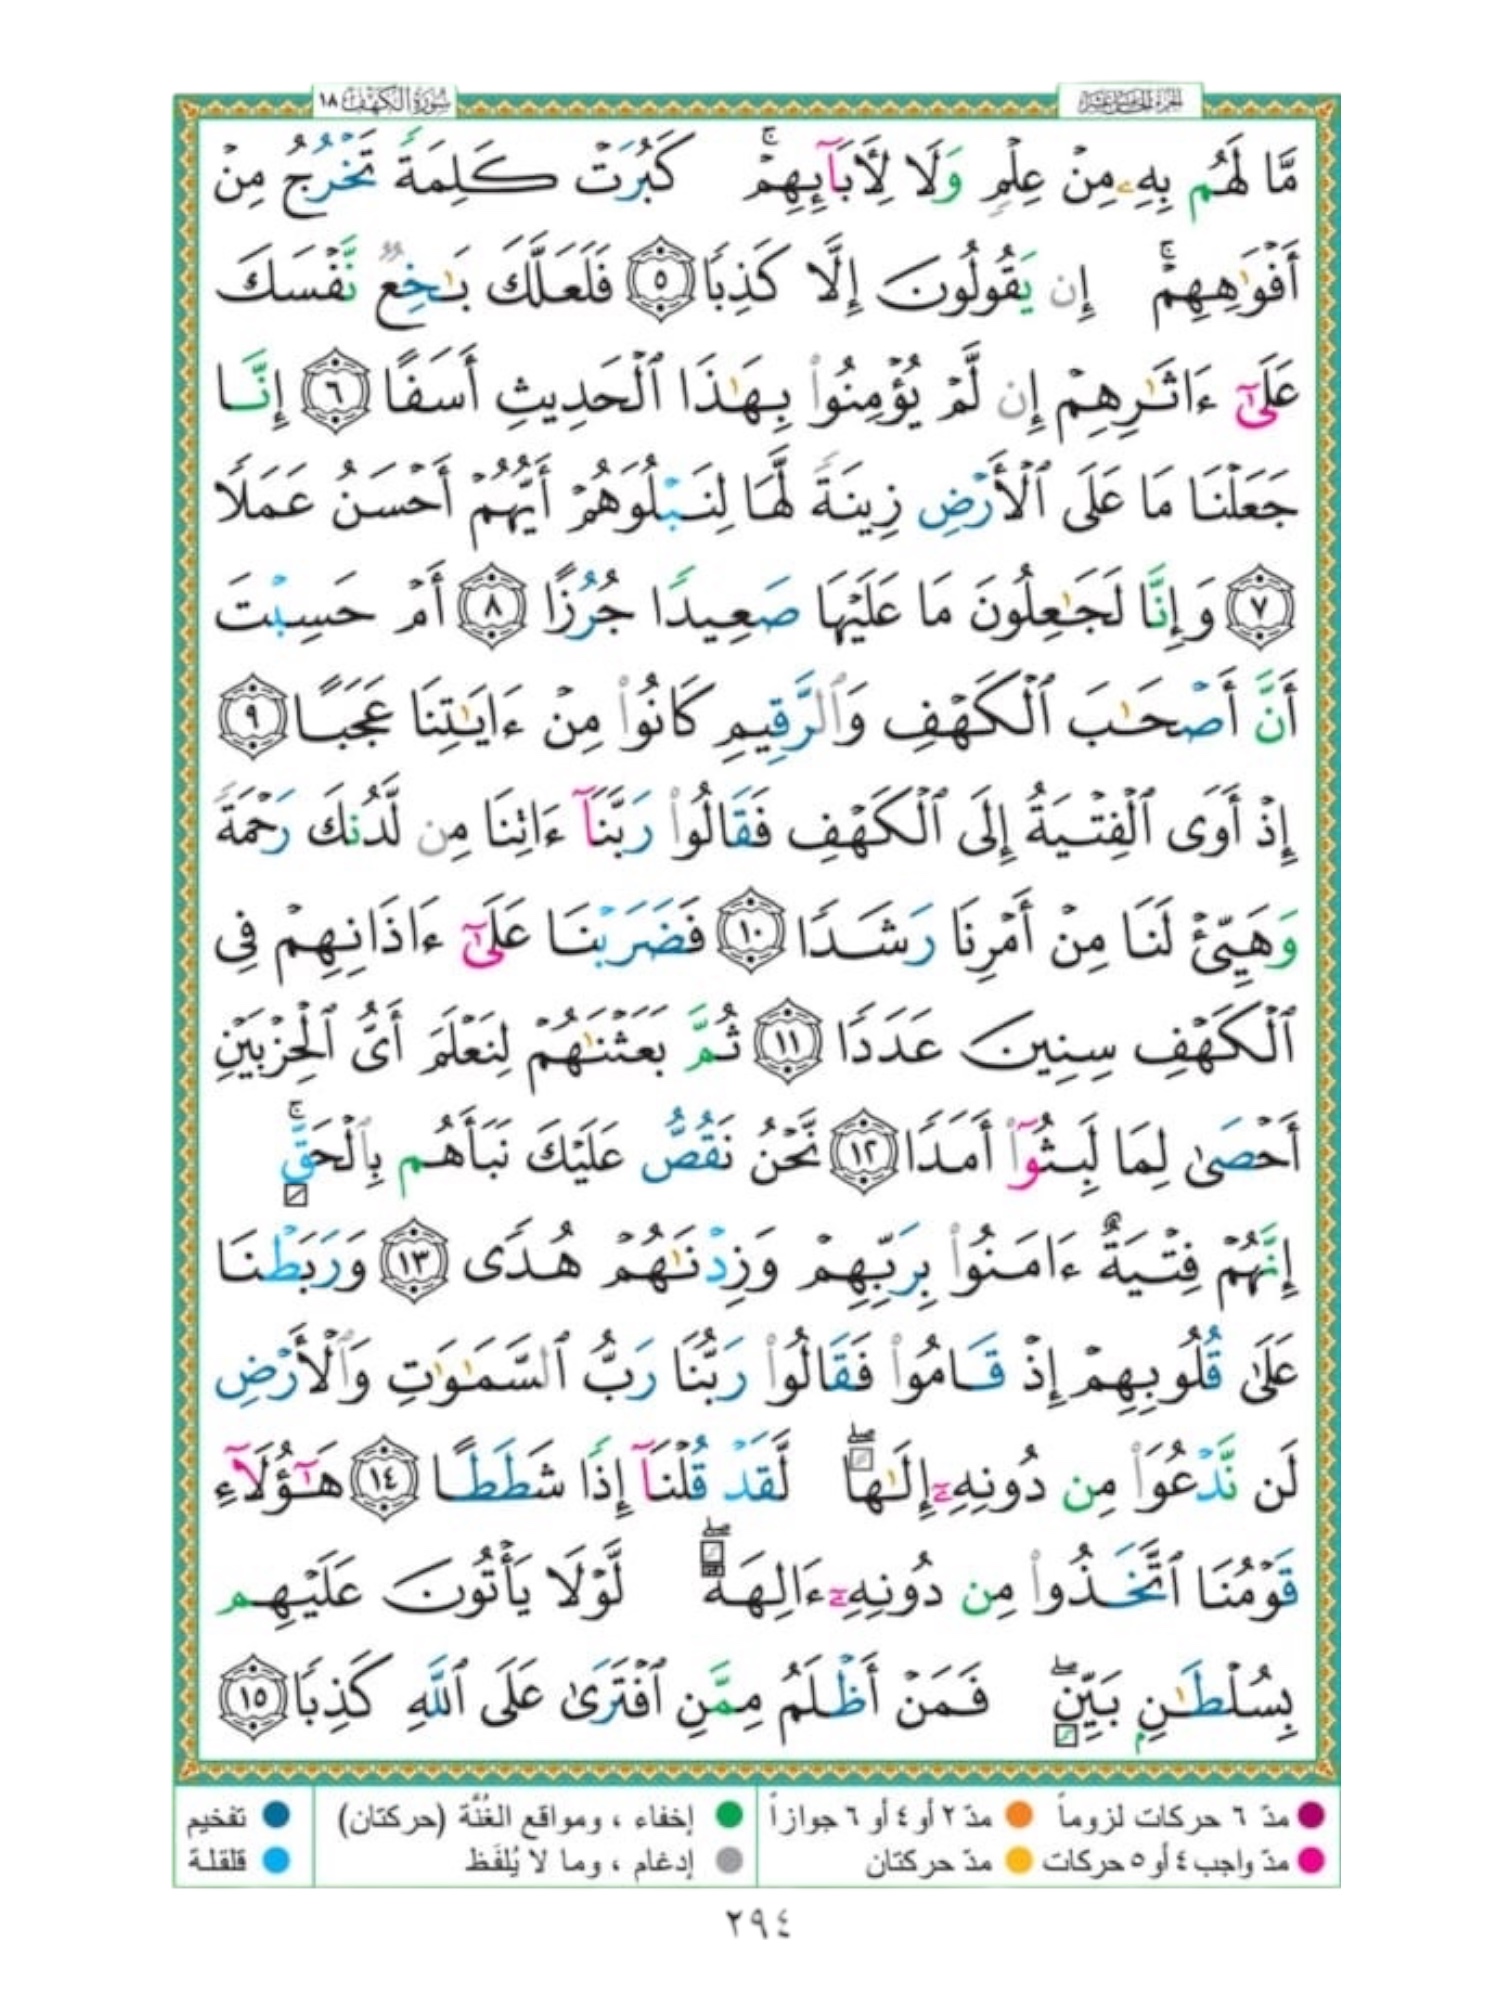 سُورَةُ الكَهْف ١٨
الجزء الخامس عشر
مَّا لَهُم بِهِۦ مِنْ عِلْمٍ وَلَا لِأَبَآئِهِمْ ۚ كَبُرَتْ كَلِمَةً تَخْرُجُ مِنْ
أَفْوَٰهِهِمْ ۚ إِن يَقُولُونَ إِلَّا كَذِبًا ٥ فَلَعَلَّكَ بَـٰخِعٌ نَّفْسَكَ
عَلَىٰٓ ءَاثَـٰرِهِمْ إِن لَّمْ يُؤْمِنُوا۟ بِهَـٰذَا ٱلْحَدِيثِ أَسَفًا ٦ إِنَّا
جَعَلْنَا مَا عَلَى ٱلْأَرْضِ زِينَةً لَّهَا لِنَبْلُوَهُمْ أَيُّهُمْ أَحْسَنُ عَمَلًا
٧ وَإِنَّا لَجَـٰعِلُونَ مَا عَلَيْهَا صَعِيدًا جُرُزًا ٨ أَمْ حَسِبْتَ
أَنَّ أَصْحَـٰبَ ٱلْكَهْفِ وَٱلرَّقِيمِ كَانُوا۟ مِنْ ءَايَـٰتِنَا عَجَبًا ٩
إِذْ أَوَى ٱلْفِتْيَةُ إِلَى ٱلْكَهْفِ فَقَالُوا۟ رَبَّنَآ ءَاتِنَا مِن لَّدُنكَ رَحْمَةً
وَهَيِّئْ لَنَا مِنْ أَمْرِنَا رَشَدًا ١٠ فَضَرَبْنَا عَلَىٰٓ ءَاذَانِهِمْ فِى
ٱلْكَهْفِ سِنِينَ عَدَدًا ١١ ثُمَّ بَعَثْنَـٰهُمْ لِنَعْلَمَ أَىُّ ٱلْحِزْبَيْنِ
أَحْصَىٰ لِمَا لَبِثُوٓا۟ أَمَدًا ١٢ نَّحْنُ نَقُصُّ عَلَيْكَ نَبَأَهُم بِٱلْحَقِّ ۚ
إِنَّهُمْ فِتْيَةٌ ءَامَنُوا۟ بِرَبِّهِمْ وَزِدْنَـٰهُمْ هُدًى ١٣ وَرَبَطْنَا
عَلَىٰ قُلُوبِهِمْ إِذْ قَامُوا۟ فَقَالُوا۟ رَبُّنَا رَبُّ ٱلسَّمَـٰوَٰتِ وَٱلْأَرْضِ
لَن نَّدْعُوَا۟ مِن دُونِهِۦٓ إِلَـٰهًا ۖ لَّقَدْ قُلْنَآ إِذًا شَطَطًا ١٤ هَـٰٓؤُلَآءِ
قَوْمُنَا ٱتَّخَذُوا۟ مِن دُونِهِۦٓ ءَالِهَةً ۖ لَّوْلَا يَأْتُونَ عَلَيْهِم
بِسُلْطَـٰنٍۭ بَيِّنٍ ۖ فَمَنْ أَظْلَمُ مِمَّنِ ٱفْتَرَىٰ عَلَى ٱللَّهِ كَذِبًا ١٥
مدّ ٦ حركات لزوماً مدّ ٢ أو ٤ أو ٦ جوازاً إخفاء ، ومواقع الغُنَّة (حركتان) تفخيم
مدّ واجب ٤ أو ٥ حركات مدّ حركتان إدغام ، وما لا يُلفَظ قلقلة
٢٩٤